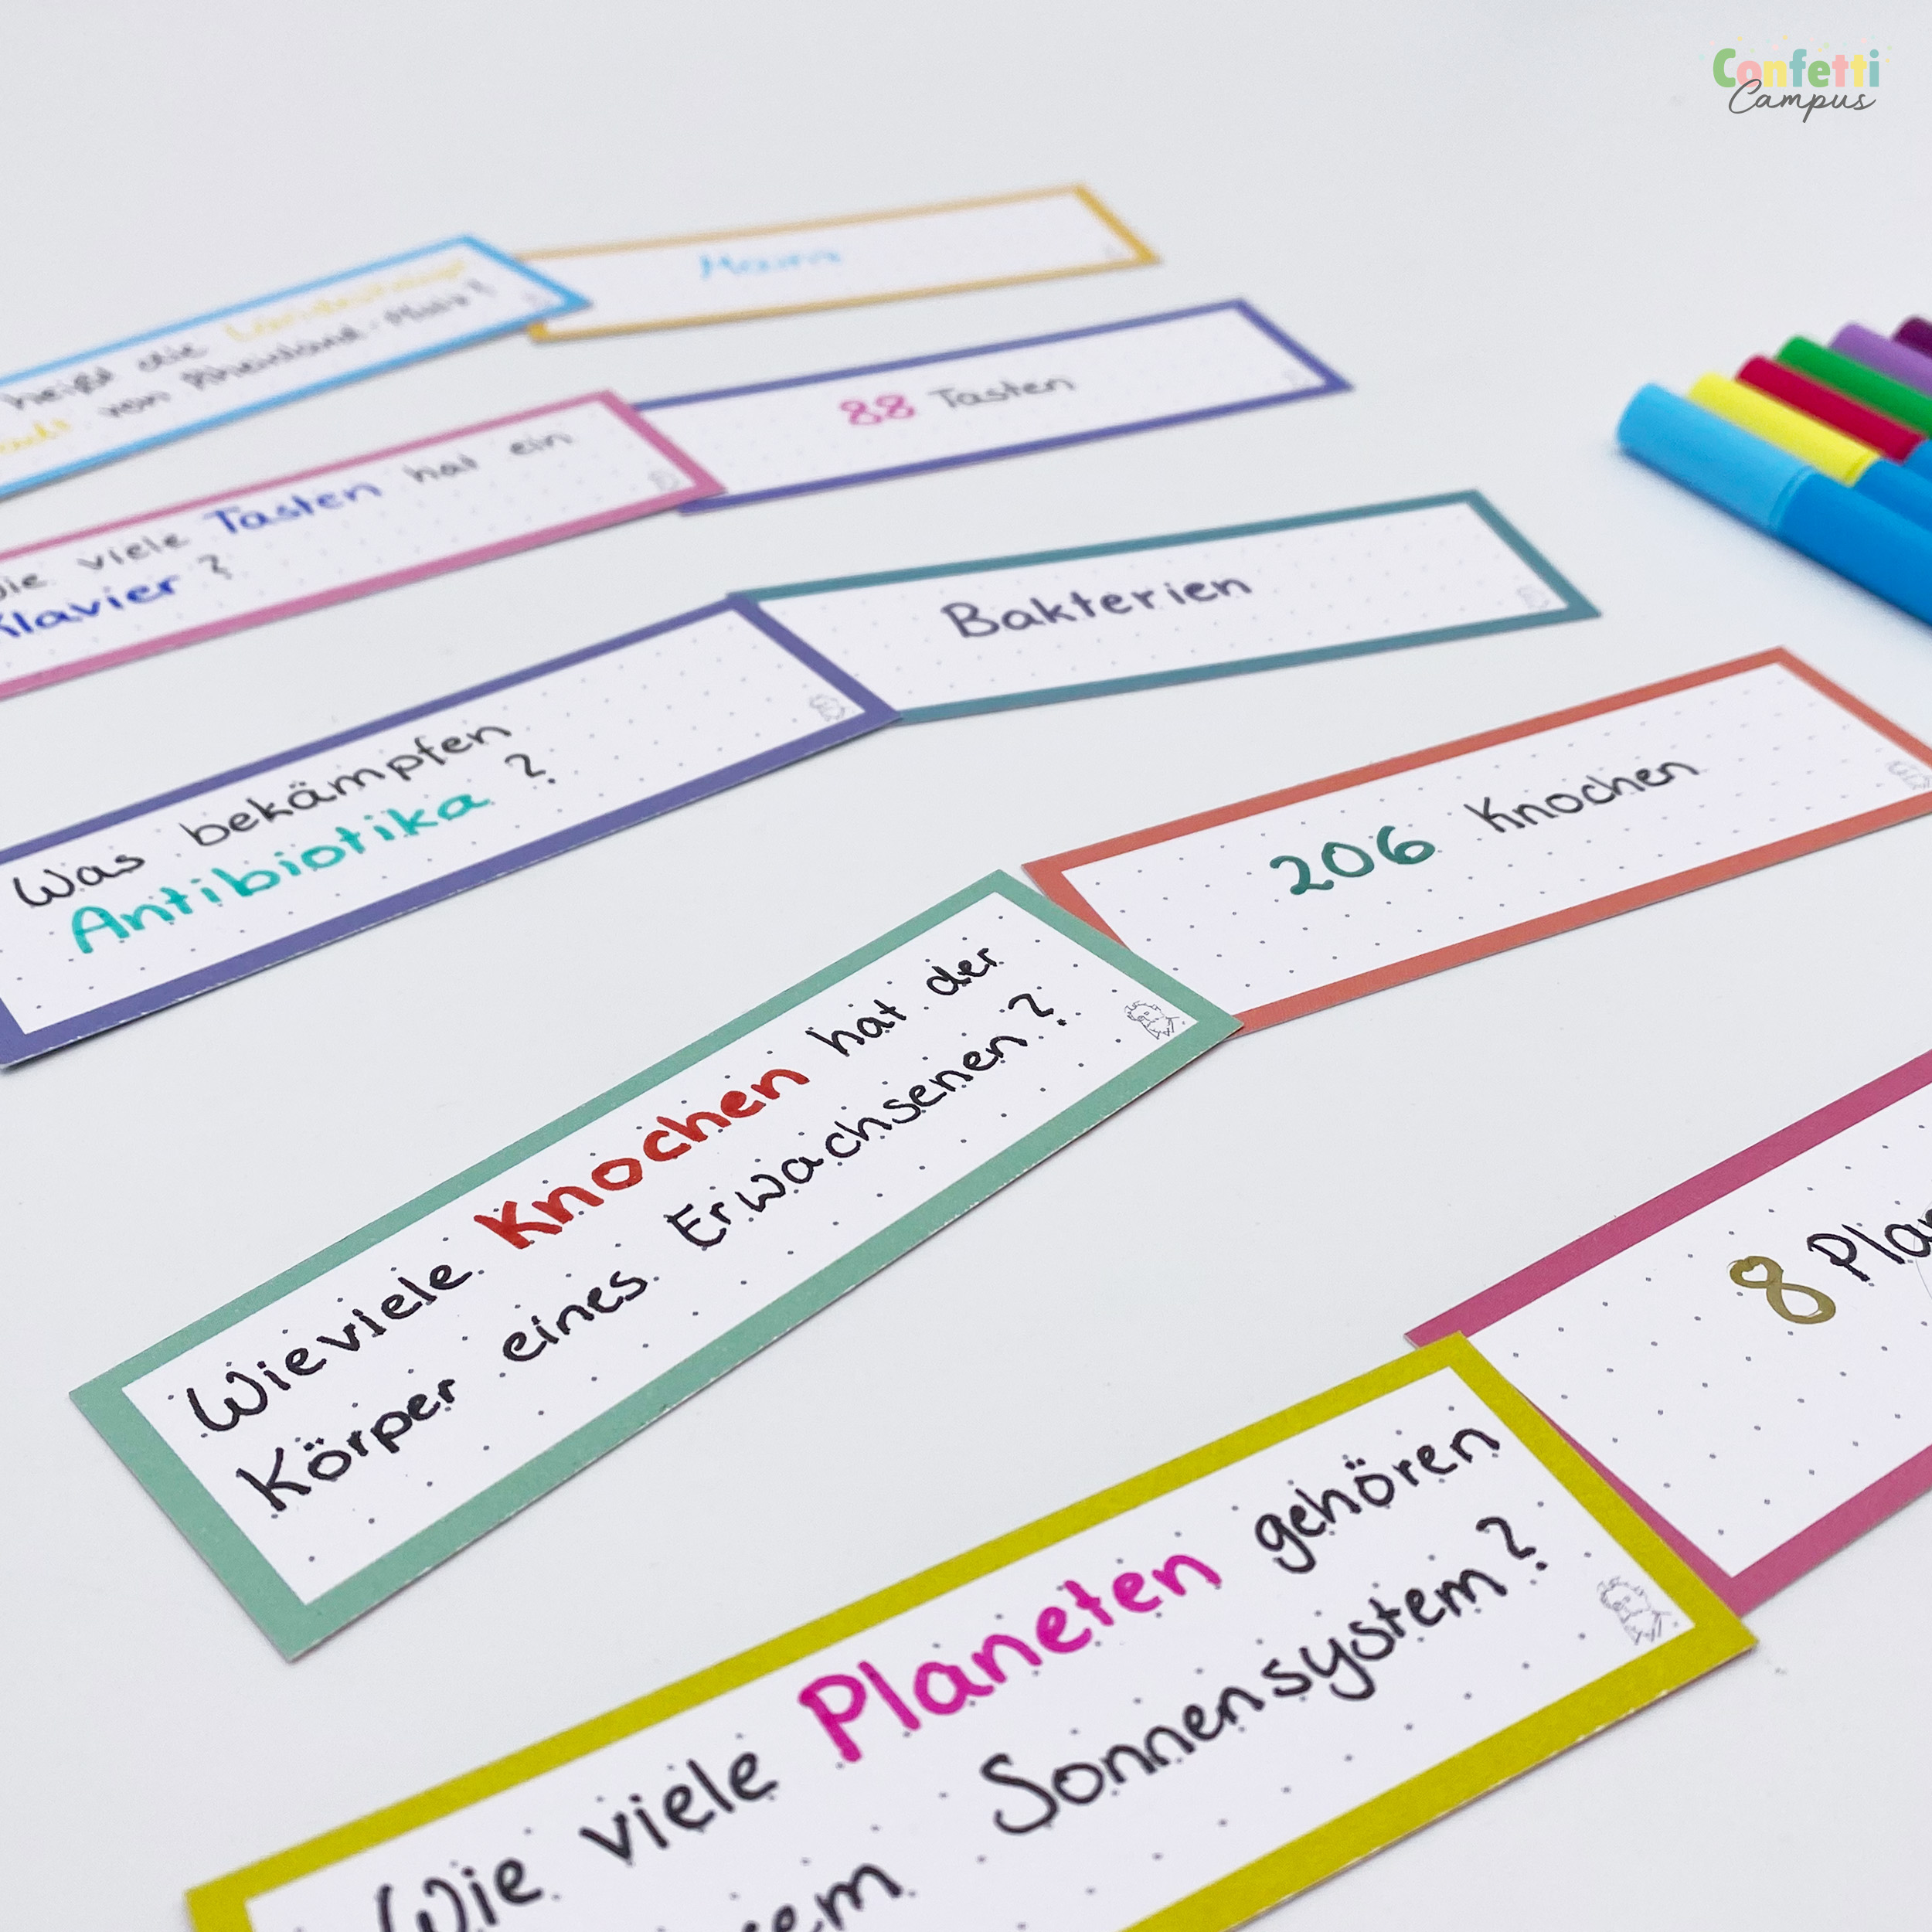 Confetti
Campus
heißt die Landeshaupt
von Rheinland-Pfalz?
Mainz
viele Tasten hat ein
Klavier?
88 Tasten
Was bekämpfen
Antibiotika?
Bakterien
Wieviele Knochen hat der
Körper eines Erwachsenen?
206 Knochen
Wie viele Planeten gehören
Sonnensystem?
8